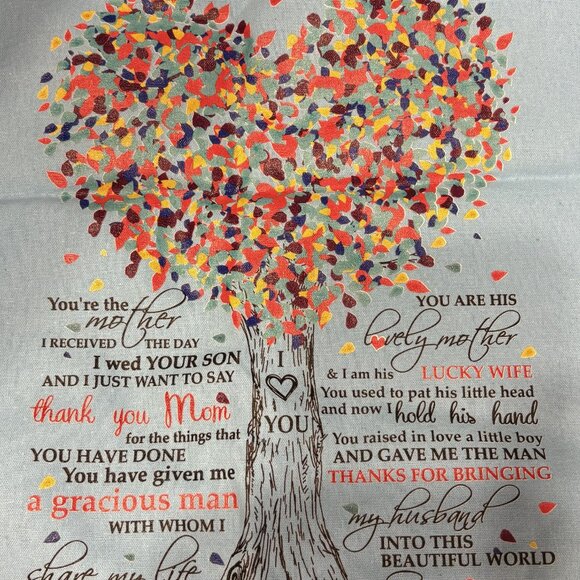 You're the
mother
I RECEIVED THE DAY
I wed YOUR SON
AND I JUST WANT TO SAY
thank you Mom
for the things that
YOU HAVE DONE
You have given me
a gracious man
WITH WHOM I
share my life
I
YOU
YOU ARE HIS
lovely mother
& I am his LUCKY WIFE
You used to pat his little head
and now I hold his hand
You raised in love a little boy
AND GAVE ME THE MAN
THANKS FOR BRINGING
my husband
INTO THIS
BEAUTIFUL WORLD